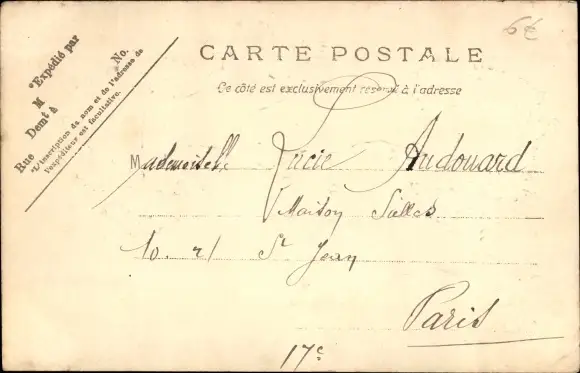 6€
*Expédié par
M No.
Demt à
Rue
*L'inscription du nom et de l'adresse de
l'expéditeur est facultative.
CARTE POSTALE
Ce côté est exclusivement réservé à l'adresse
Mademoiselle Lucie Audouard
Maison Salles
10. r/ St Jean
Paris
17e